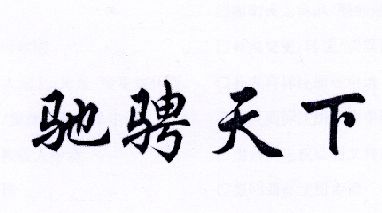 驰骋天下